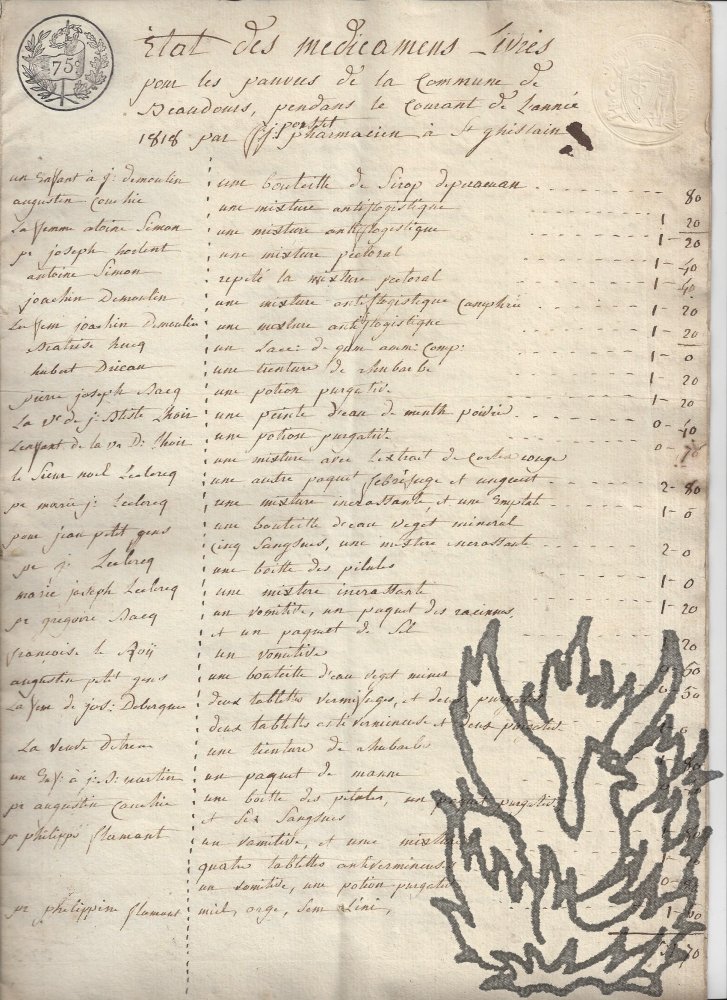 75c
Etat des medicamens Livrés
pour les pauvres de la Commune de
Beaudours, pendans le Courant de l'année
1818 par pharmacien à St ghislain
un Enfant à j: demoulin une bouteille de Sirop depuraman 80
augustin Cauchie une mixture antiflogistique 1 - 20
La femme atoine Simon une mixture antiflogistique 1 - 20
pr joseph hoclent une mixture pectoral 1 - 40
antoine Simon repeté la mixture pectoral 1 - 40
joachin Demoulin une mixture antiflogistique Camphrée 1 - 20
La fem joachin Demoulin une mixture antiflogistique 1 - 20
Beatrise hucq un de gom amm: Comp: 1 - 0
hubert Ducau une tienture de rhubarbe 1 - 20
pierre joseph Bacq une potion purgative 1 - 20
La ve de j: Btiste Lhoir une peinte d'eau de menth poivée 0 - 40
L'enfant de la ve D: Lhoir une potion purgative 0
le Sieur noel Leclercq une mixture avec l'extrait de rouge
une autre paquet febrifuge et unguent 2 - 80
pr marie j: Leclercq une mixture incrassante, et une Emplat 1 - 0
pour jean petit gens une bouteille d'eau veget mineral
pr j: Leclercq cinq Sangsues, une mixture incrassante 2 - 0
une boitte des pilules
marie joseph Leclercq une mixture incrassante 1 - 0
pr gregoire Bacq un vomitive, un paquet des racinnes, 1 - 20
et un paquet de Sel
françoise le Roÿ un vomitive 1 20
augustin petit gens une bouteille d'eau veget miner 50
La fem de jos: Debergue deux tablettes vermifuges, et deux 50
deux tablettes antivermineuse et deux 0
La veuve une tienture de rhubarbe
un Enf: à j: B: martin un paquet de manne
pr augustin Cauchie une boitte des pilules, un paquet purgatif
et Six Sangsues
pr philippe flamant un vomitive, et une mixture
quatre tablettes antivermineuses
un vomitive, une potion purgative
pr philippine flamant miel, orge, Sem Lini, 1
70